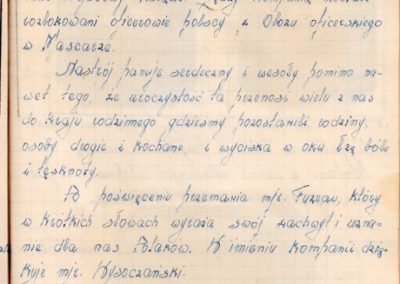 rozlokowani oficerowie polscy z Obozu oficerskiego
w Mascarze.
Nastrój panuje serdeczny i wesoły pomimo na-
wet tego, że uroczystość ta przenosi wielu z nas
do kraju rodzinnego gdzieśmy pozostawili rodziny,
osoby drogie i kochane, i wyciska w oku łzę bólu
i tęsknoty.
Po poświęceniu przemawia mjr. Fuzeau, który
w krótkich słowach wyraża swój zachwyt i uzna-
nie dla nas Polaków. W imieniu kompanii dzię-
kuje mjr. Wysoczański.